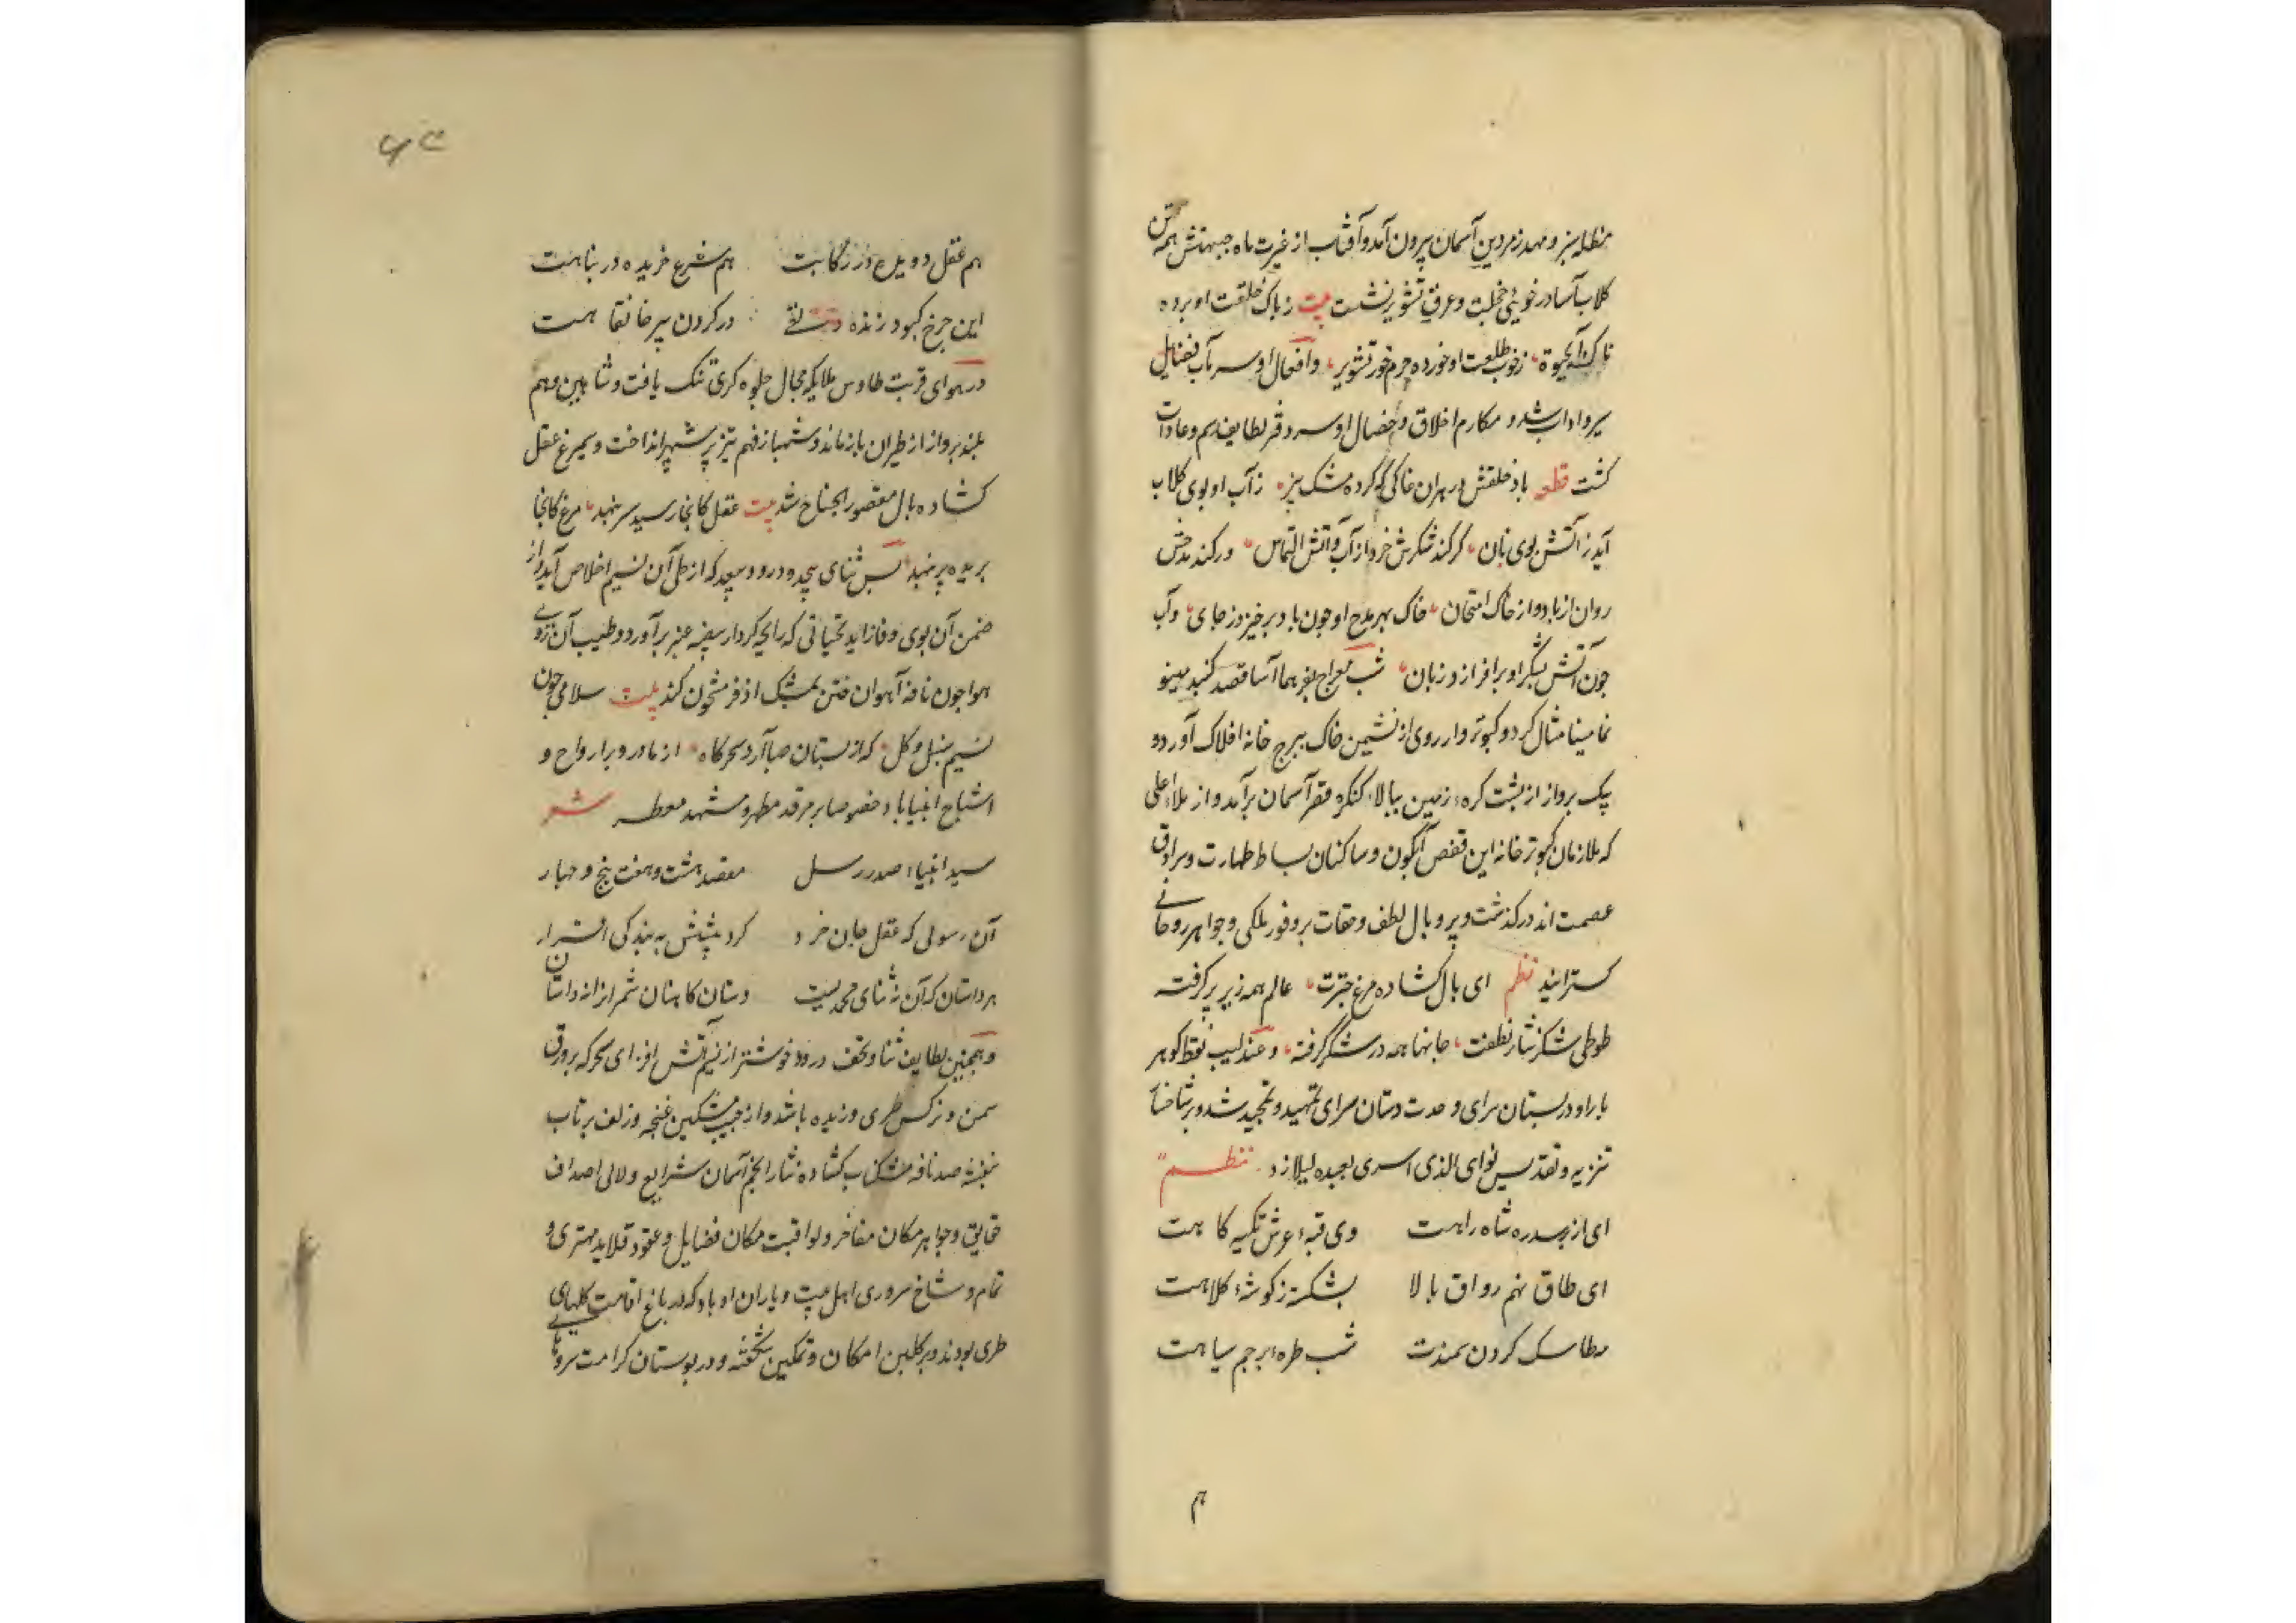 مظله سبز و مهد زمردین آسمان بیرون آمد و آفتاب از غیرت ماه جبهتش همه تن
کلاب آسا در خوئ خجلت و عرق تشویر نشست بیت ز باک خلقت او برده
ناک آبحیوة زخوب طلعت او خورده جرم خور تشویر وافعال او سر باب فضایل
شد و مکارم اخلاق و خصال او سر دفتر لطایف رسم و عادات
کشت قطعه باد خلقش در بهران خاکی که کرده مشک بیز ز آب او بوی کلاب
آید ز آتش بوی نان کر کند شکرش خرد از آب و آتش التماس ور کند مدحش
روان از باد و از خاک امتحان خاک بهر مدح او جون باد برخیزد ز جای وآب
جون آتش بشکر او برافرازد زبان شب معراج بفر هما آسا قصد کنبد مینو
نما مینا مثال کرد و کبوتر وار روی از نشیمن خاک ببرج خانه افلاک آورد و
بیک برواز از بشت کرهٔ زمین ببالا کنکره قصر آسمان برآمد و از ملاء اعلی
که ملازمان کبوتر خانه این قفص آبکون و ساکنان بساط طهارت و سرادق
عصمت اند درکذشت و پر و بال لطف و مقات بر وفور ملکی و جواهر روحانی
کسترانید نظم ای بال کشاده مرغ جترت عالم همه زیر پر کرفته
طوطی شکر نثار نطقت جانها همه در شکر گرفته وعندلیب نقطا کوهر
بار او در بستان سرای وحدت دستان سرای تمهید و تمجید شد و بر شاخسار
تنزیه و تقدیس نوای الذی اسری بعبده لیلا زد نظم
ای از بر سدره شاه راهت وی قبهٔ عرش تکیه کاهت
ای طاق نهم رواق بالا بشکسته ز کوشهٔ کلاهت
مطاسک کردن سمندت شب طرهٔ برجم سیاهت
هم
هم عقل دویده در رکابت هم شرع خزیده در بناهت
این جرخ کبود زنده دلقی در کردن پیر خانقاهت
در هوای قربت طاوس ملایکه مجال جلوه کری تنک یافت و شاهین وهم
بلند برواز از طیران باز ماند و شهباز فهم تیز پر شهپر انداخت و سیمرغ عقل
کشاده بال مقصور الجناح شد بیت عقل کانجا رسید سر بنهد مرغ کانجا
بریده پر بنهد بس ثنای بیحد و درود بیعد که از طی آن نسیم اخلاص آید و از
ضمن آن بوی وفا زاید تحیاتی که رایحه کردار بیضه عنبر برآورد و طیب آن روی
هوا جون نافه آهوان ختن بمشک اذفر مشحون کند بیت سلامی جون
نسیم سنبل و کل که از بستان صبا آرد سحرکاه از ما درو بر ارواح و
اشباح انبیا باد خصوصا بر مرقد مطهر و مشهد معطر شعر
سید انبیاء صدر رسل مقصد هشت و هفت پنج و جهار
آن رسولی که عقل جان خرد کرد پیشش به بندکی اقرار
هر داستان که آن نه ثنای محمدیست دستان کاهنان شمر انرا نه داستان
و همجنین لطایف ثنا و تحف درود خوشتر از نسیم آتش افزای سحر که بر ورق
سمن و نرکس طری وزیده باشد و از جیب مشکین غنجه و زلف بر تاب
بنفشه صد نافه مشک ناب کشاده نثار انجم آسمان شرایع و لالی اصداف
حقایق و جواهر مکان مفاخر و لواقبت مکان فضایل و عقود قلاید مهتری و
تمام و شاخ سروری اهل بیت و یاران او باد که در باغ اقامت کلهای
طری بودند و بر کلبن امکان و تمکین شکفته و در بوستان کرامت سروهای